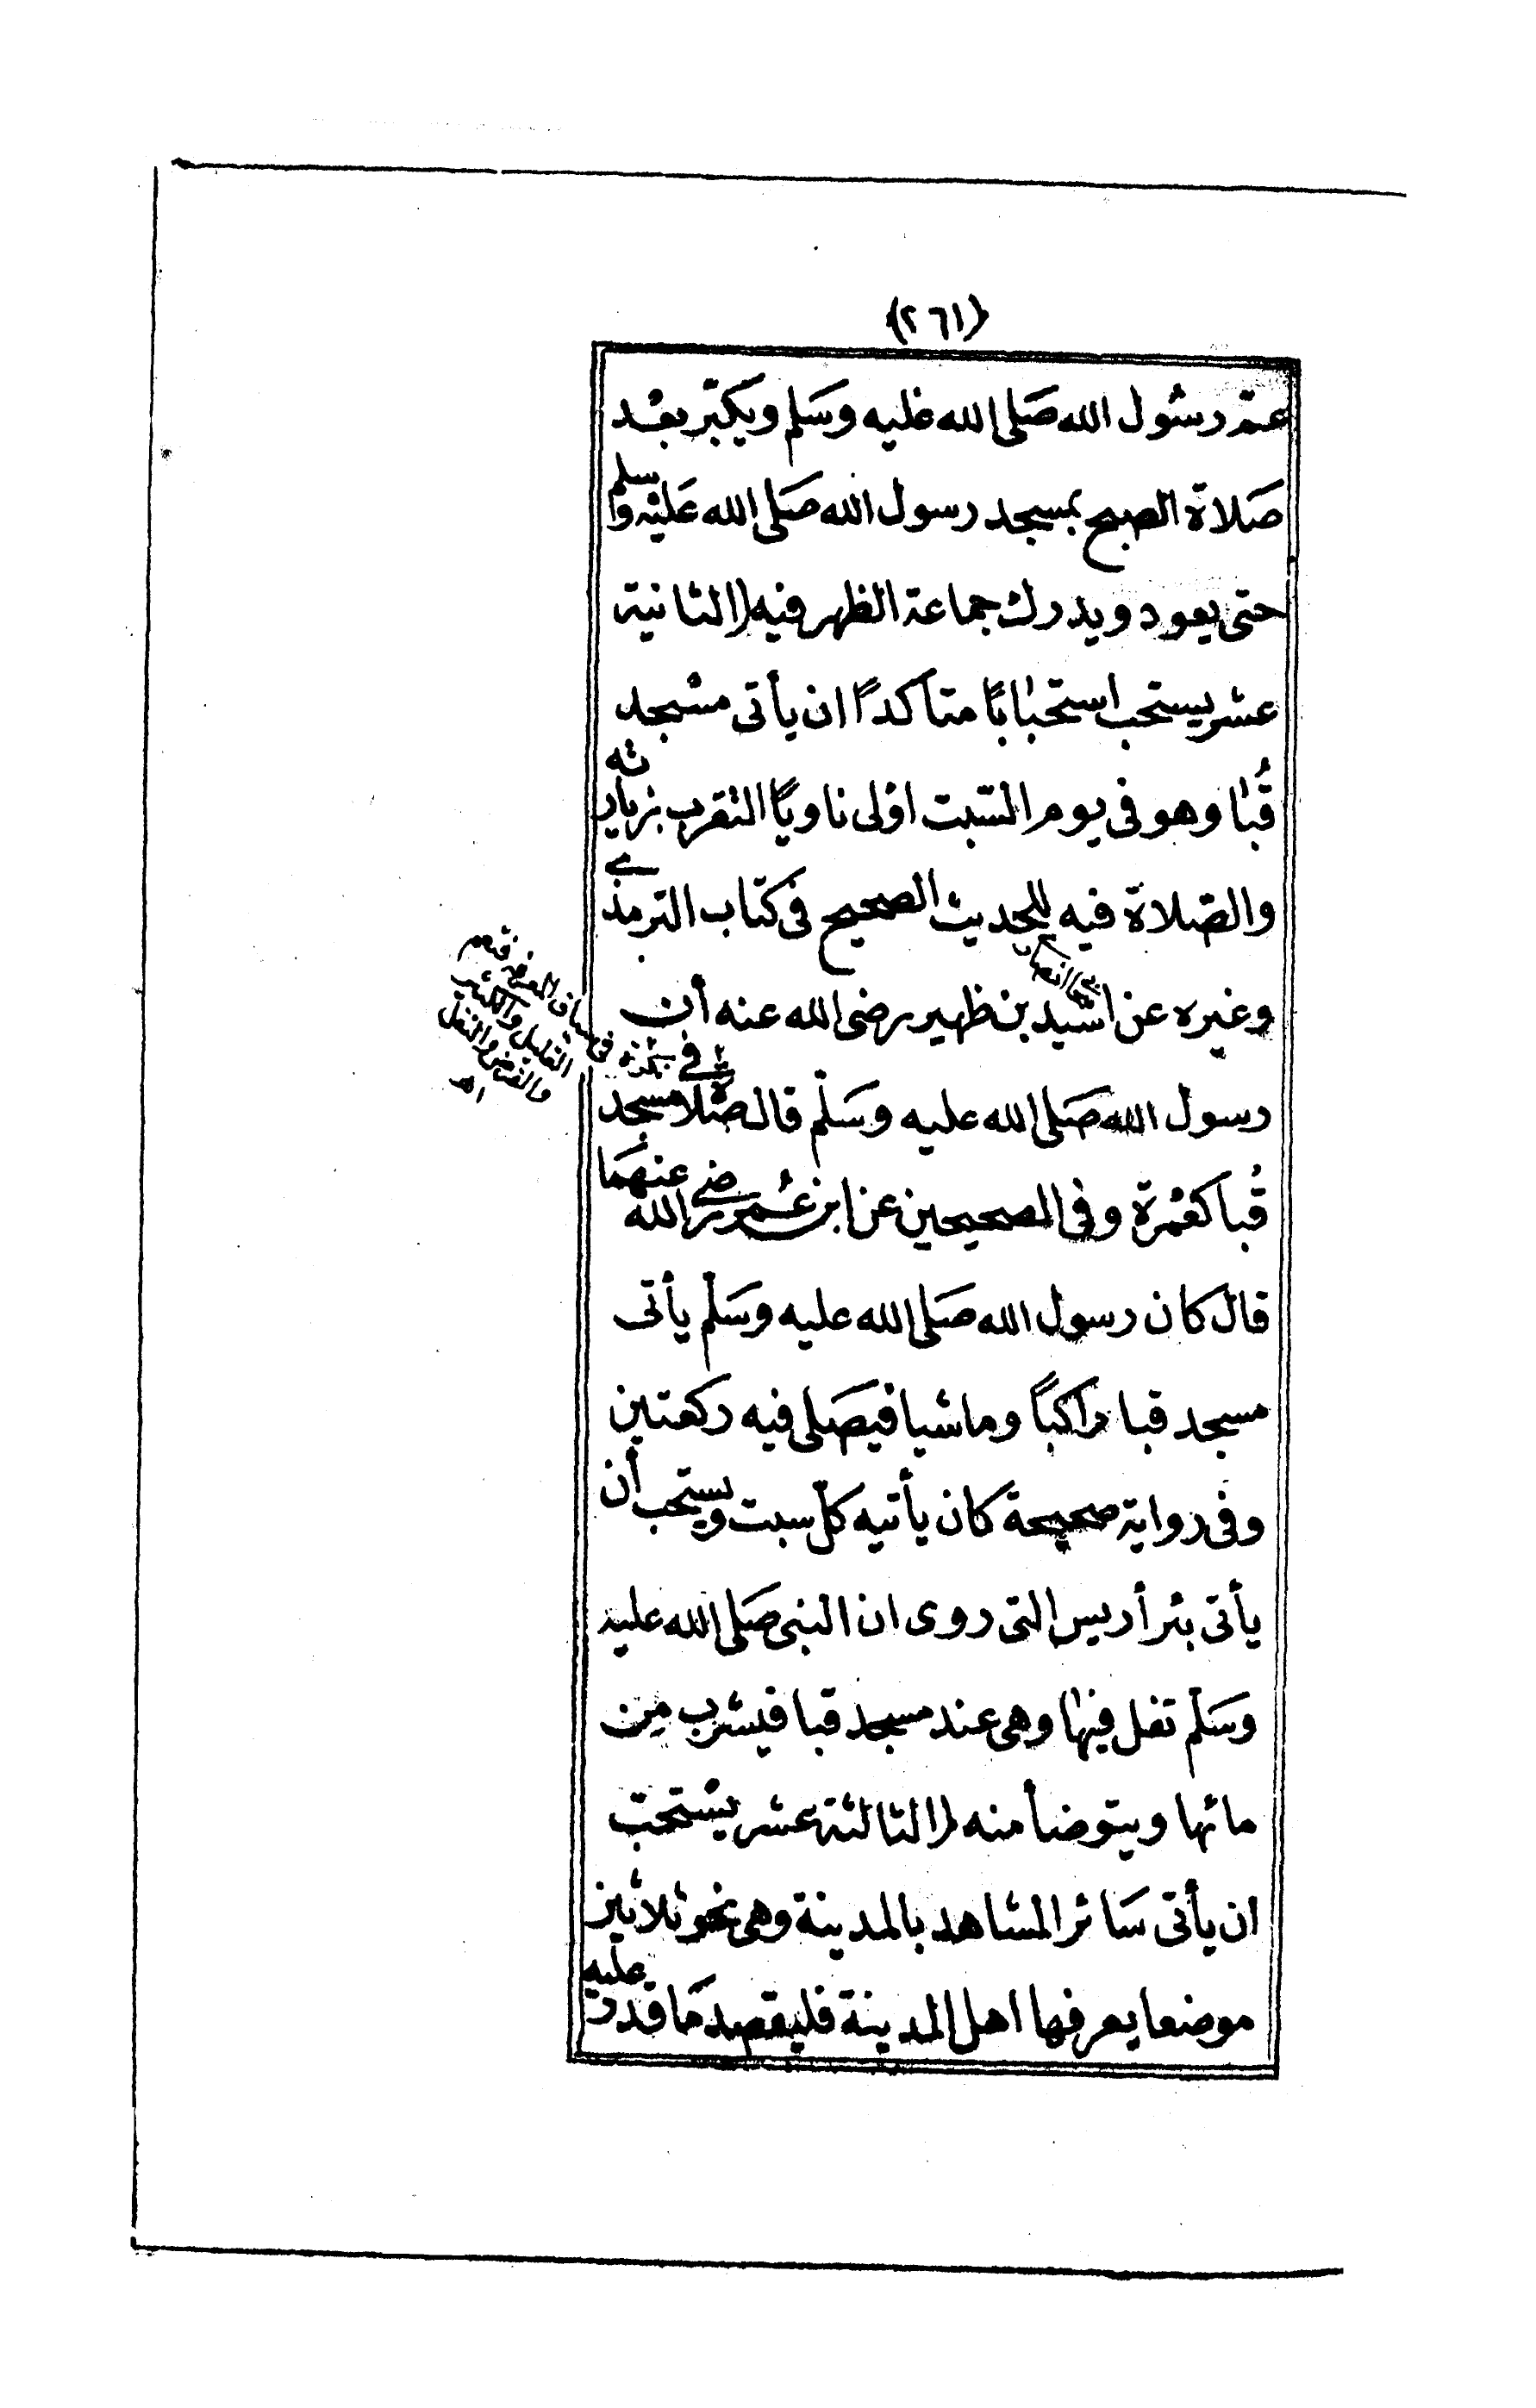 (٢٦١)
عمّ رسول الله صلى الله عليه وسلم ويبكّر بعد
صلاة الصبح بمسجد رسول الله صلى الله عليه وسلم
حتى يعود ويدرك جماعة الظهر فيه (الثانية
عشر يستحب استحبابًا متأكدًا ان يأتى مسجد
قُبا وهو فى يوم السّبت اولى ناويًا التقرب بزيارته
والصّلاة فيه للحديث الصحيح فى كتاب الترمذي
وغيره عن اسيد بن ظهير رضى الله عنه أن
رسول الله صلى الله عليه وسلّم قال صلاة في مسجد
قُبا كعُمرة وفى الصحيحين عن ابن عُمر رضي الله عنهما
قال كان رسول الله صلى الله عليه وسلّم يأتى
مسجد قبا راكبًا وماشيا فيصلى فيه ركعتين
وفى رواية صحيحة كان يأتيه كلّ سبت ويستحب أن
يأتى بئر أريس التى روى ان النبى صلى الله عليه
وسلّم تفل فيها وهى عند مسجد قبا فيشرب من
مائها ويتوضأ منه (الثالثة عشر يستحبّ
ان يأتى سائر المشاهد بالمدينة وهى نحو ثلاثين
موضعا يعرفها اهل المدينة فليقصد ما قدر عليه
القليل والكثير
والفرض والنفل
اهـ